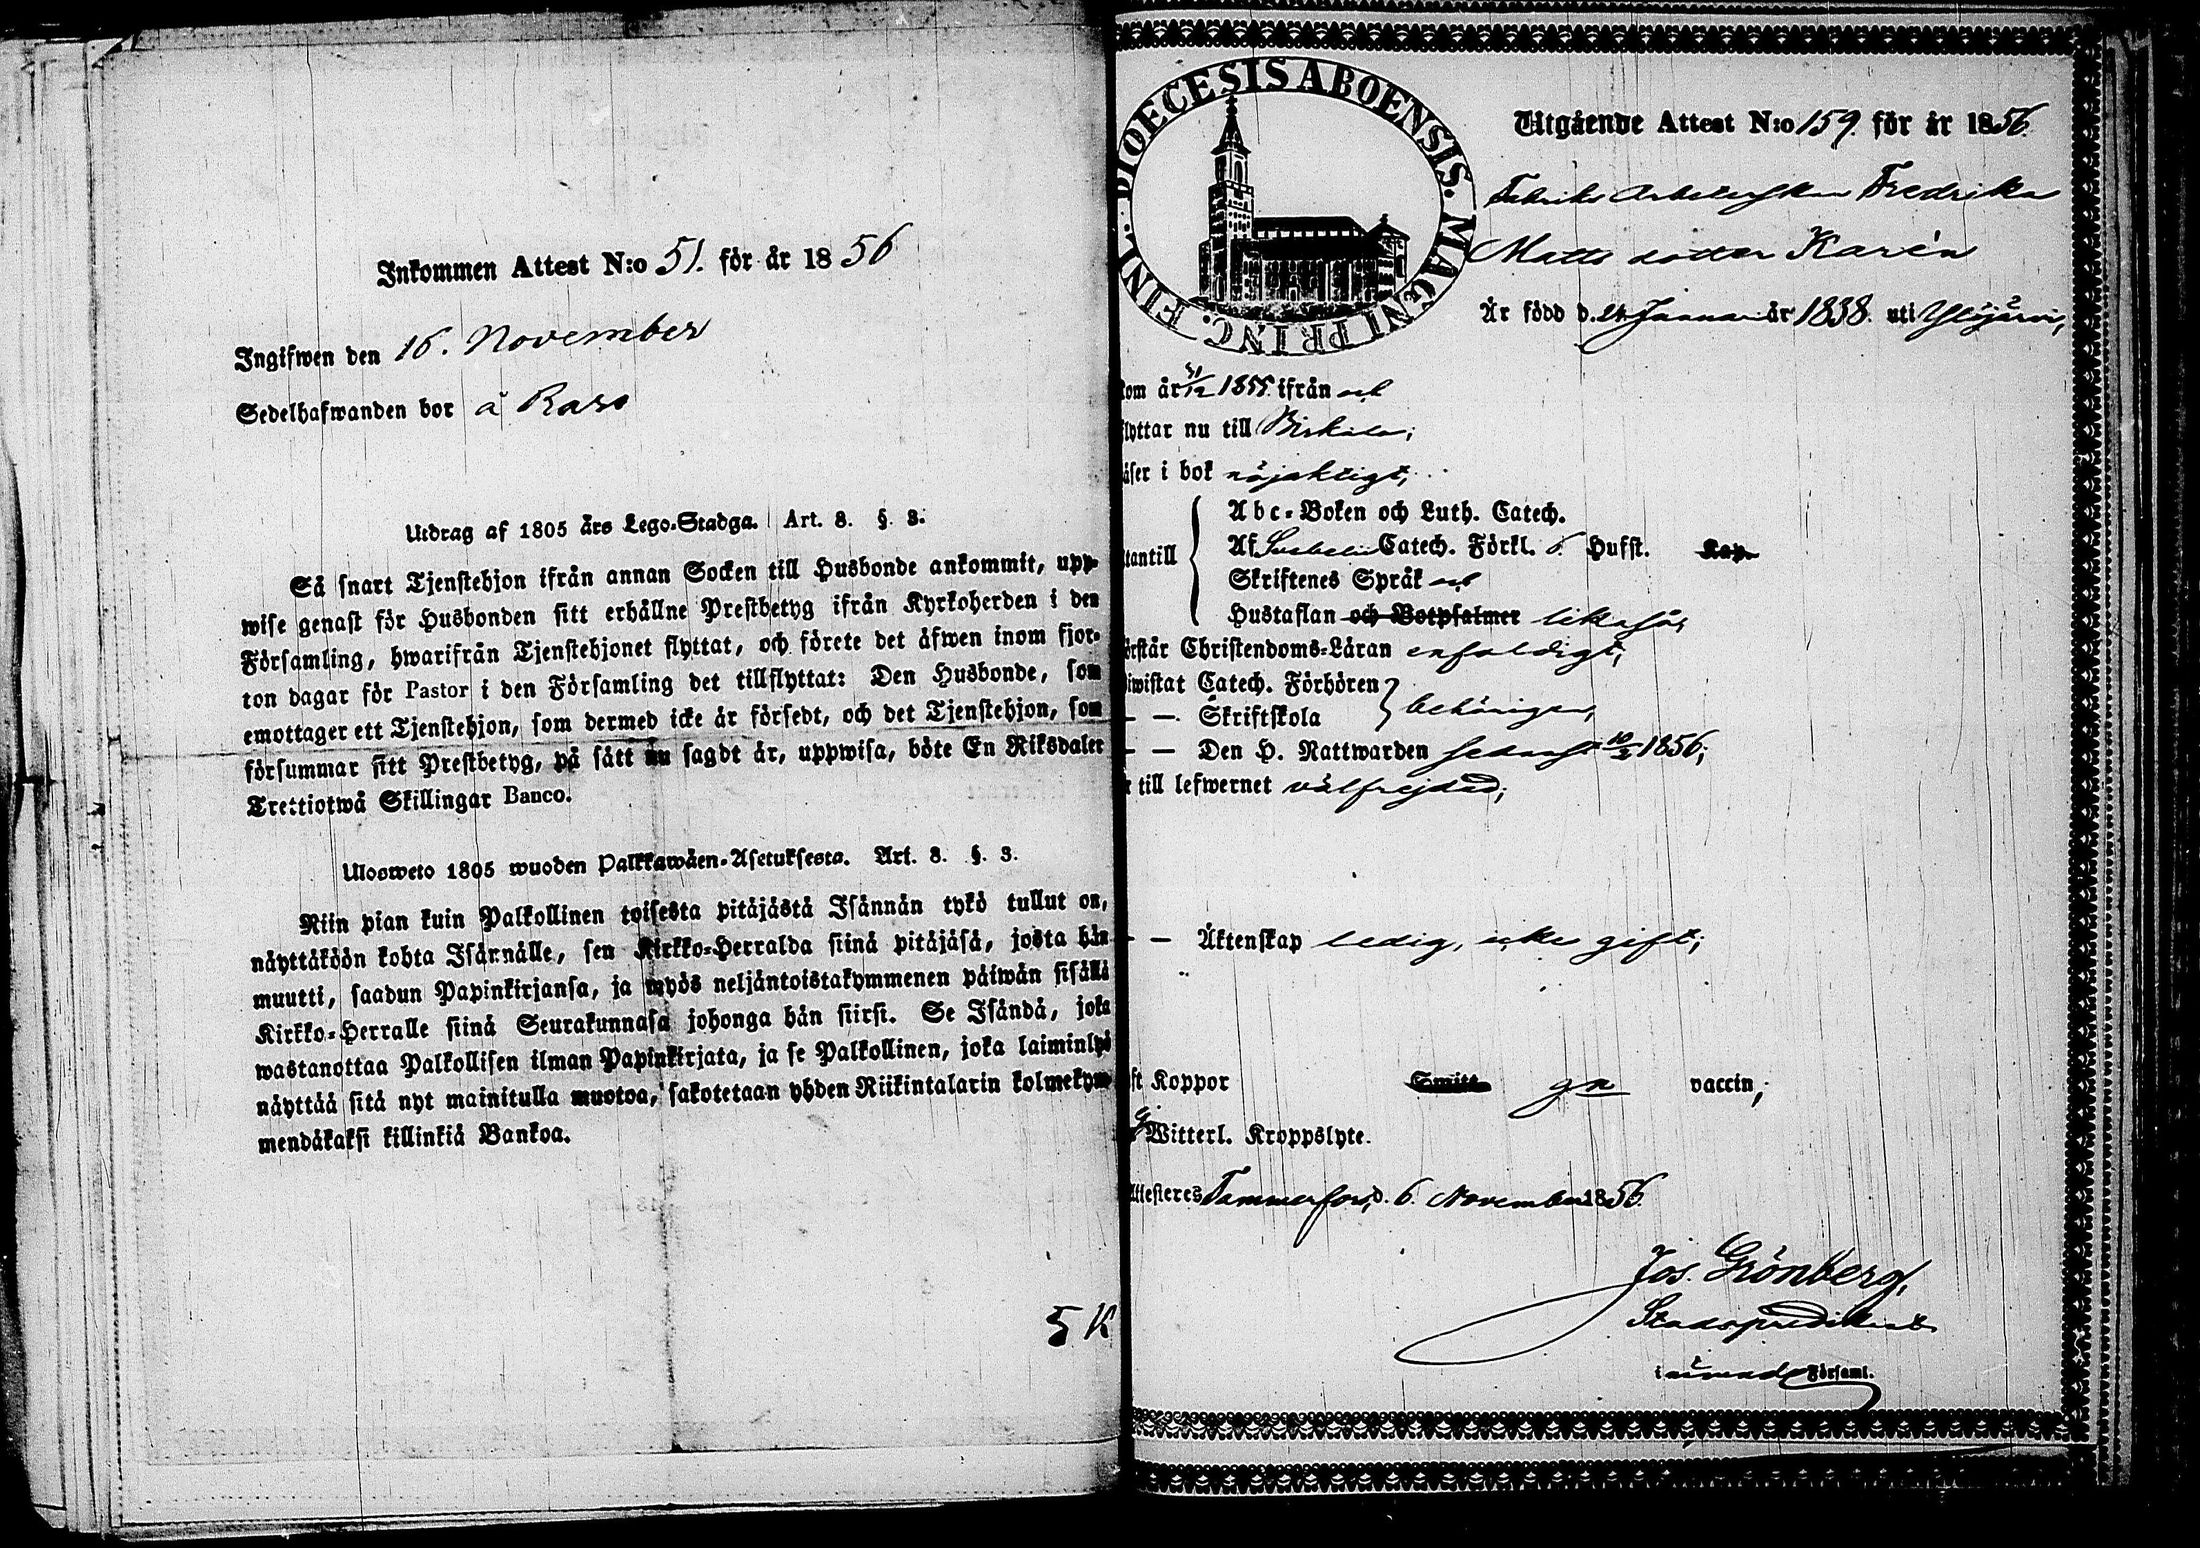 Inkommen Attest N:o 51. för år 1856
Ingifwen den 16. November
Sedelhafwanden bor å Raso
Utdrag af 1805 års Lego-Stadga. Art. 8. §. 8.
Så snart Tjenstehjon ifrån annan Socken till Husbonde ankommit, upp-
wise genast för Husbonden sitt erhållne Prestbetyg ifrån Kyrkoherden i den
Församling, hwarifrån Tjenstehjonet flyttat, och förete det äfwen inom fjor-
ton dagar för Pastor i den Församling det tillflyttat: Den Husbonde, som
emottager ett Tjenstehjon, som dermed icke är försedt, och det Tjenstehjon, som
försummar sitt Prestbetyg, på sätt nu sagdt är, uppwisa, böte En Riksdaler
Trettiotwå Skillingar Banco.
Ulosweto 1805 wuoden Palkkawäen-Asetuksesta. Art. 8. §. 3.
Niin pian kuin Palkollinen toisesta pitäjästä Isännän tykö tullut on,
näyttäköön kohta Isännälle, sen Kirkko-Herralda siinä pitäjäsä, josta hän
muutti, saadun Papinkirjansa, ja myös neljäntoistakymmenen päiwän sisällä
Kirkko-Herralle siinä Seurakunnasa johonga hän siirsi. Se Isändä, joka
wastanottaa Palkollisen ilman Papinkirjata, ja se Palkollinen, joka laiminlyö
näyttää sitä nyt mainitulla muotoa, sakotetaan yhden Riikintalarin kolmekym-
mendäkaksi killinkiä Bankoa.
5 K
DIOECESIS ABOENSIS. MAGNI PRINC. FINL.
Utgående Attest N:o 159. för år 1856.
Fabriks Arbeterskan Fredrika
Matts dotter Karén
Är född d. 24 Januari år 1838. uti Ylöjärvi,
kom år 31/12 1855. ifrån och
flyttar nu till Birkala;
läser i bok nöjaktigt;
utantill
Abc-Boken och Luth. Catech.
Af Svebelii Catech. Förkl. 6 Hufst. Kap.
Skriftenes Språk och
Hustaflan och Botpsalmer likaså;
förstår Christendoms-Läran enfaldigt;
biwistat Catech. Förhören
— — Skriftskola behörigen,
— — Den H. Nattwarden sednast 10/5 1856;
är till lefwernet välfrejdad;
— — Äktenskap ledig, icke gift;
haft Koppor Smitt ga vaccin;
ej Witterl. Kroppslyte.
Attesteres Tammerfors, d. 6. November 1856.
Jos. Grönberg,
Stadspredikant
i ... Församl.